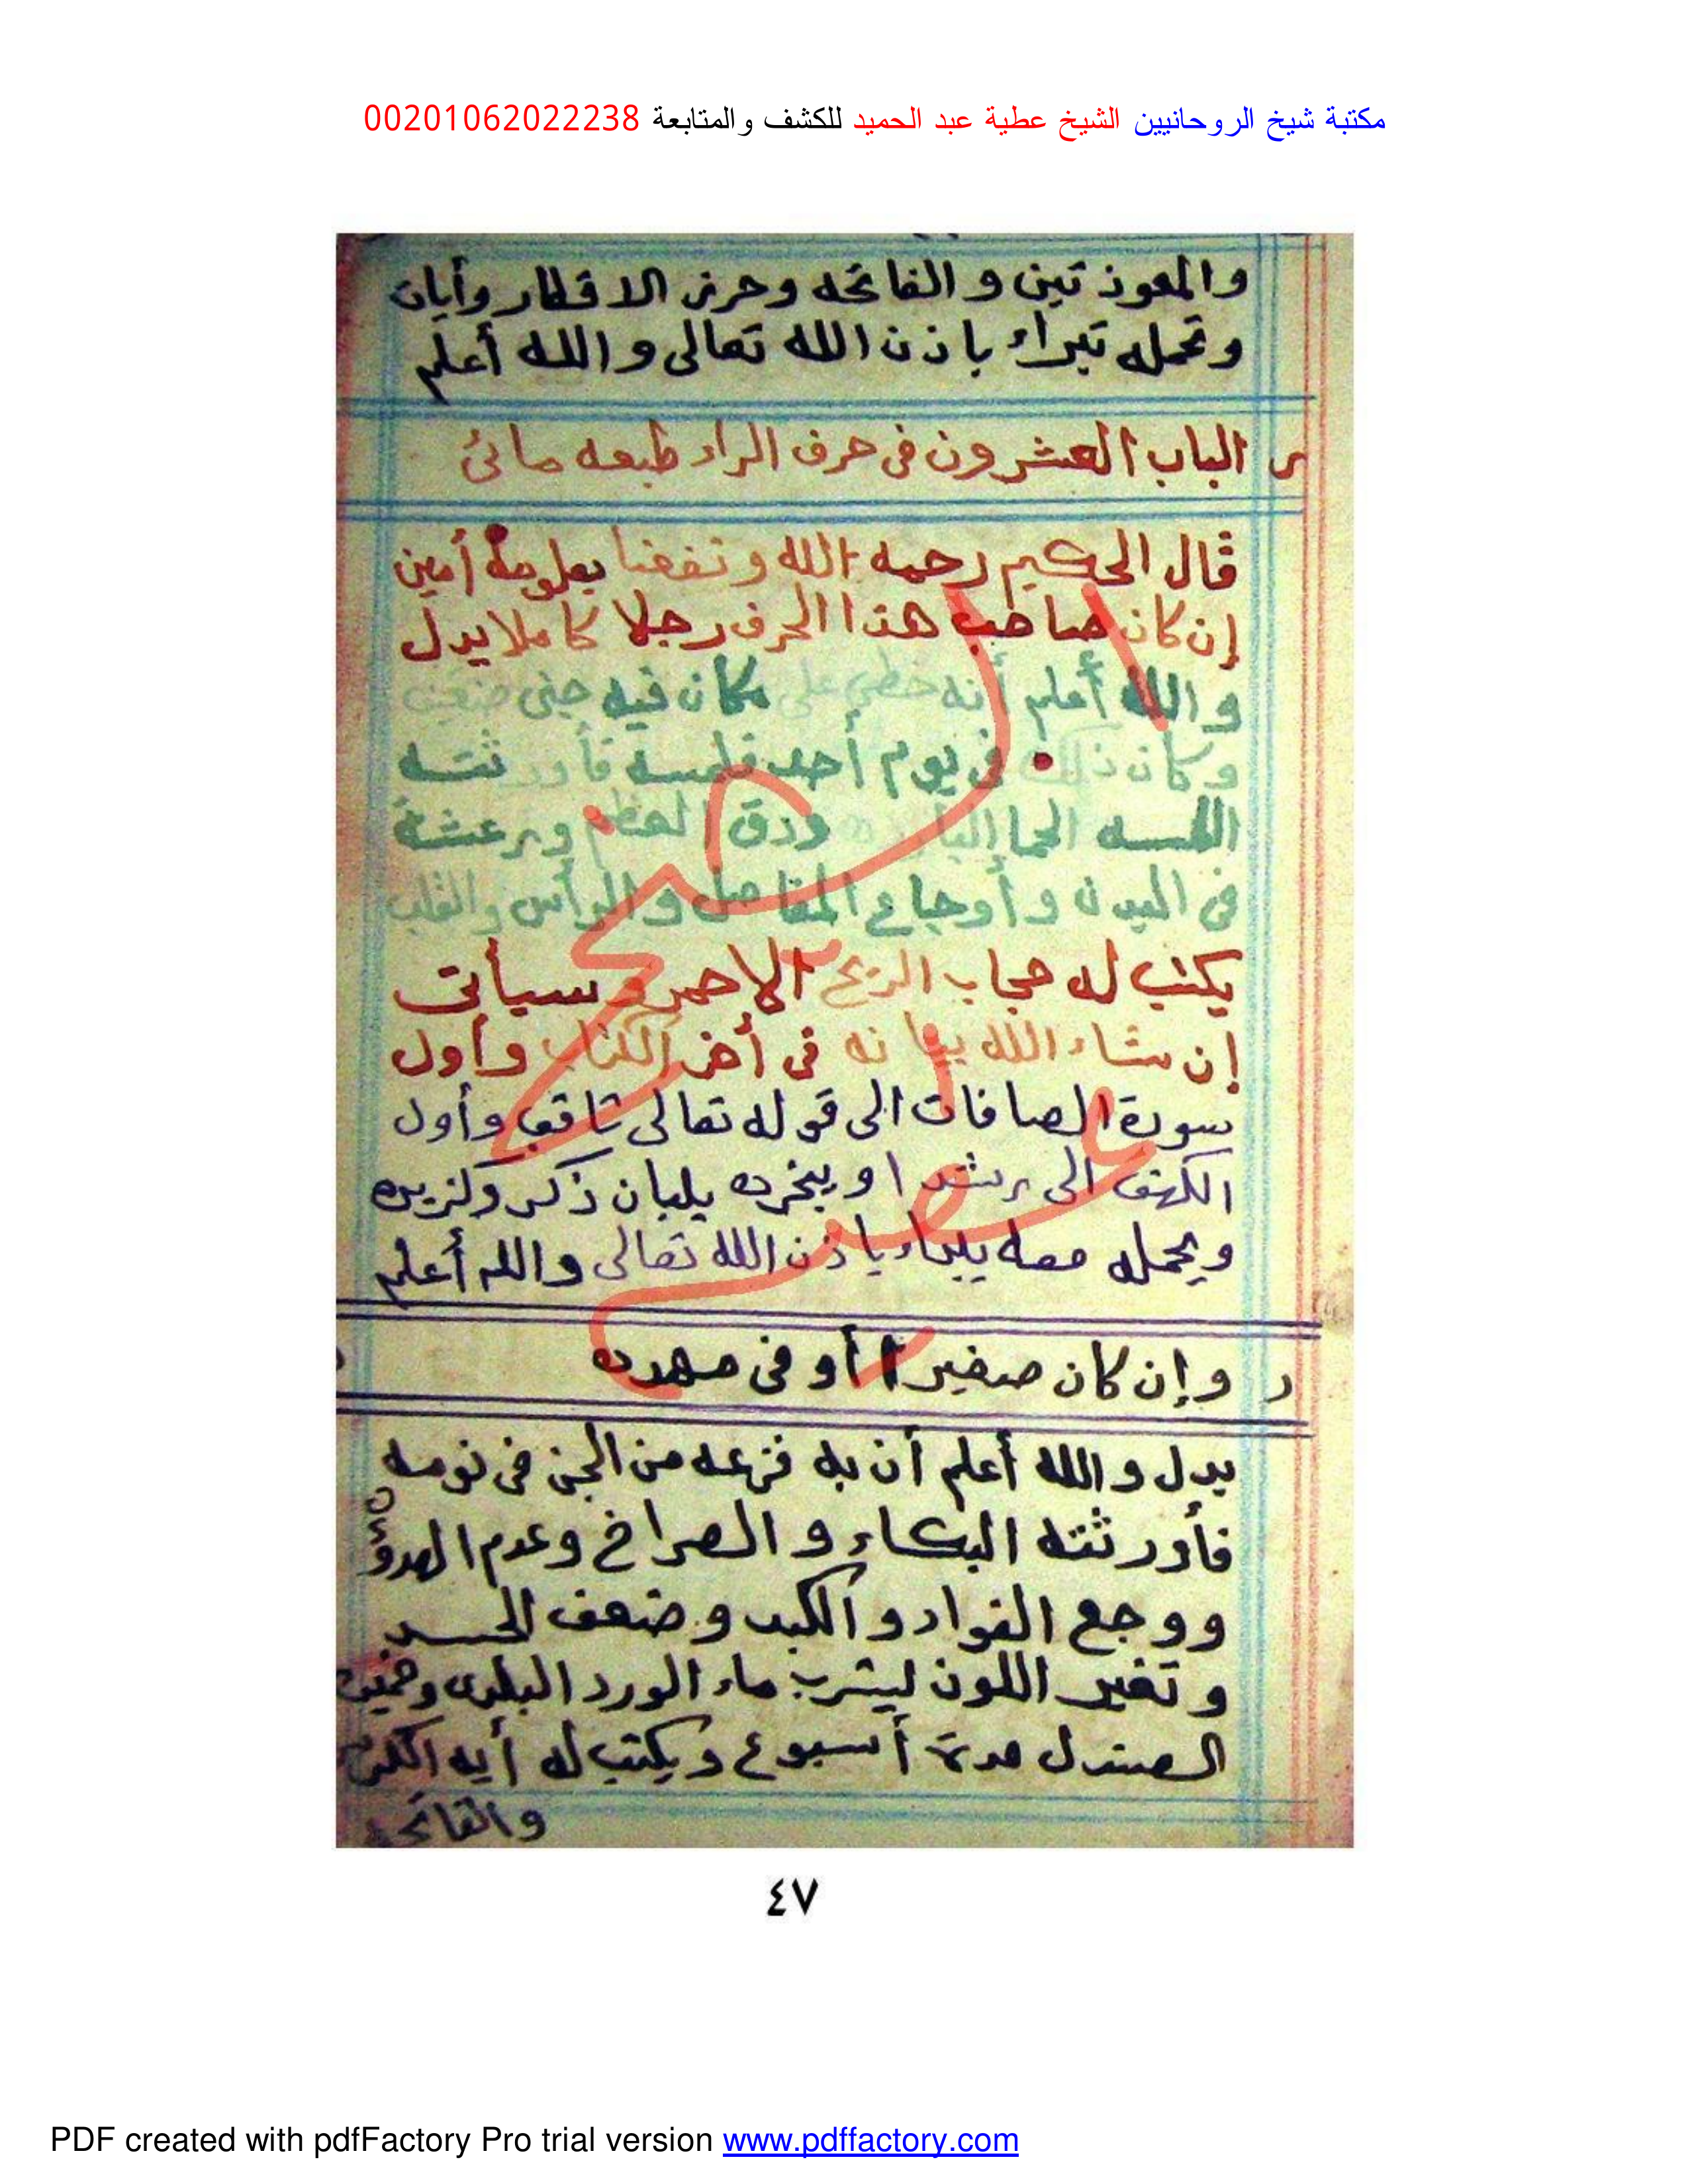 مكتبة شيخ الروحانيين الشيخ عطية عبد الحميد للكشف والمتابعة 00201062022238
والمعوذتين والفاتحه وحرز الاقطار وأيات
وتحمله تبراء باذن الله تعالى والله أعلم
ر الباب العشرون فى حرف الراء طبعه مائى
قال الحكيم رحمه الله ونفعنا بعلومه أمين
إن كان صاحب هذا الحرف رجلا كاملا يدل
والله أعلم أنه خطى على مكان فيه جنى ضعيف
وكان ذلك فى يوم أحد فلمسه فأورثته
اللمسه الحما البارده ودق العظم ورعشة
فى البدن وأوجاع المفاصل والرأس والقلب
يكتب له حجاب الريح الاحمر وسيأتى
إن شاء الله بيانه فى أخر الكتاب وأول
سورة الصافات الى قوله تعالى ثاقب وأول
الكهف الى رشدا ويبخره بلبان ذكر وكزبره
ويحمله معه يبراء باذن الله تعالى والله أعلم
ر وإن كان صغيرا أو فى مهده
يدل والله أعلم أن به فزعه من الجن فى نومه
فأورثته البكاء والصراخ وعدم الهدؤ
ووجع الفواد والكبد وضعف الجسد
وتغير اللون ليشرب ماء الورد البلدى
الصندل مدة أسبوع ويكتب له أيه الكرسى
والفاتحه
٤٧
PDF created with pdfFactory Pro trial version www.pdffactory.com